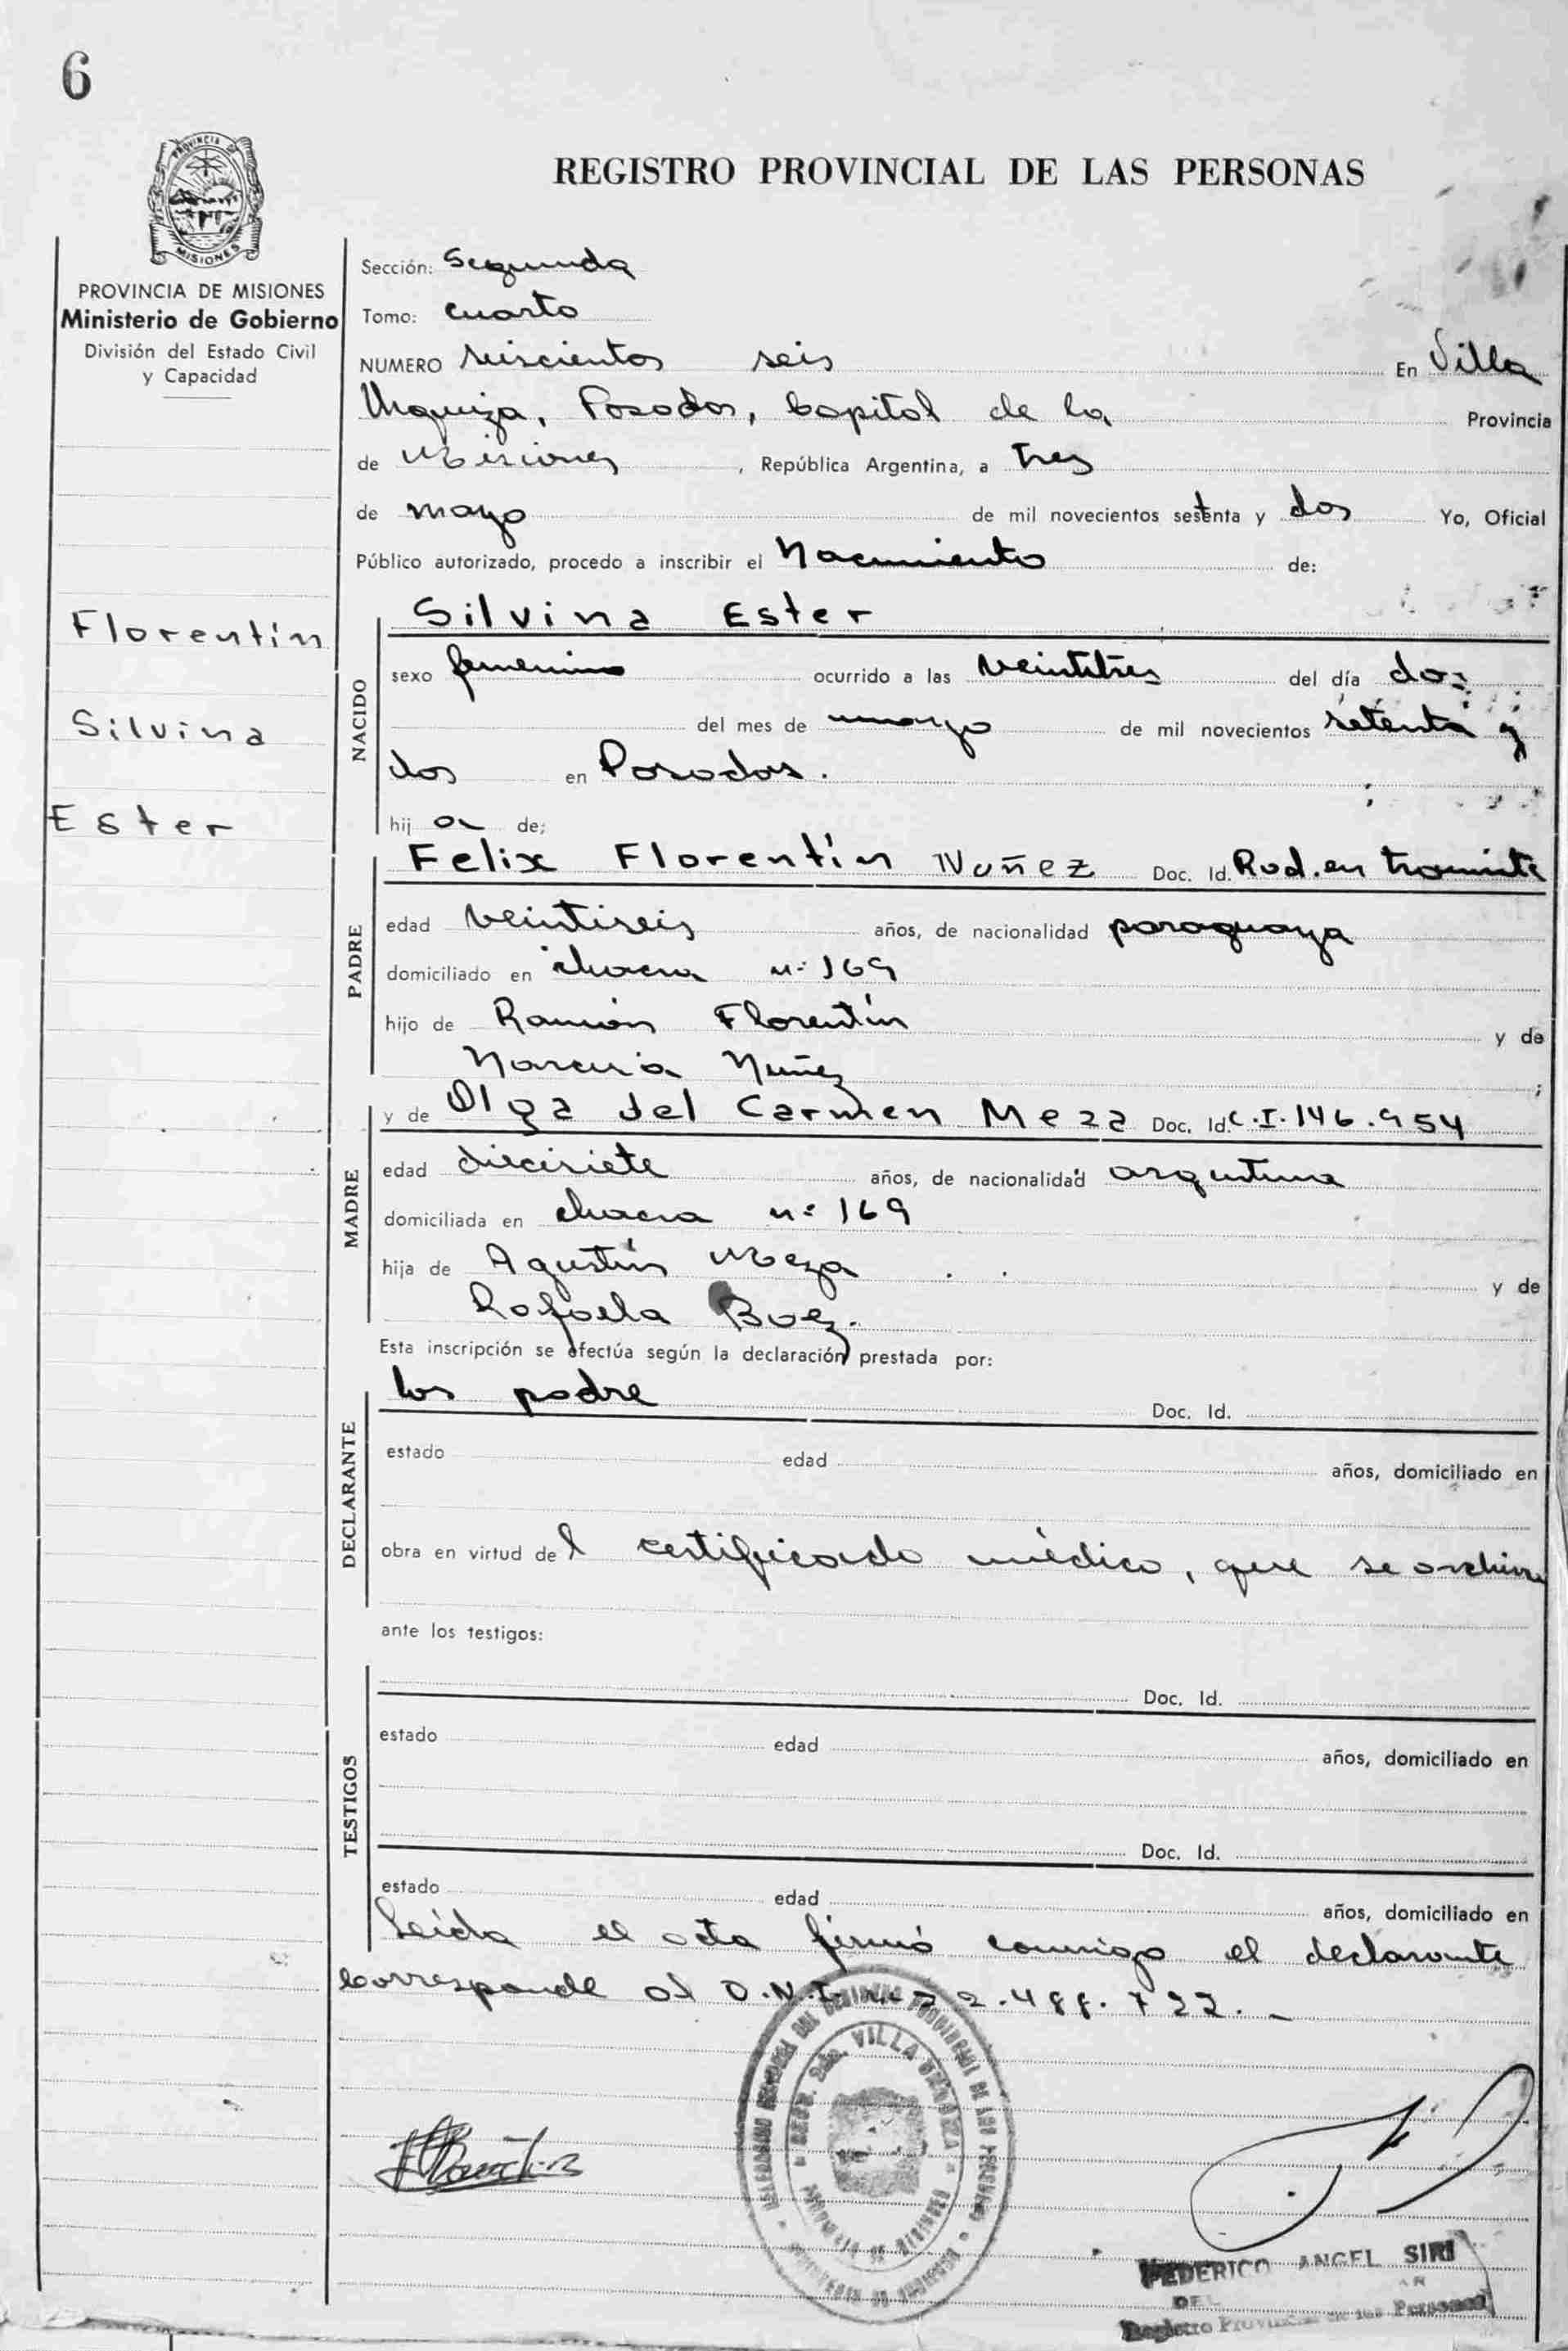 6
REGISTRO PROVINCIAL DE LAS PERSONAS
PROVINCIA DE
MISIONES
PROVINCIA DE MISIONES
Ministerio de Gobierno
División del Estado Civil
y Capacidad
Florentín
Silvina
Ester
Sección: Segunda
Tomo: cuarto
NUMERO seiscientos seis En Villa
Urquiza, Posadas, Capital de la Provincia
de Misiones, República Argentina, a tres
de mayo de mil novecientos setenta y dos Yo, Oficial
Público autorizado, procedo a inscribir el Nacimiento de:
NACIDO
Silvina Ester
sexo femenino ocurrido a las veintitres del día dos
del mes de de mil novecientos setenta y
dos en Posadas.
hij a de;
PADRE
Felix Florentín Nuñez Doc. Id. Rad. en tramite
edad veintiseis años, de nacionalidad paraguaya
domiciliado en chacra nº 169
hijo de Ramón Florentín y de
Nuñez ;
MADRE
y de Olga del Carmen Meza Doc. Id. C.I. 146.954
edad diecisiete años, de nacionalidad argentina
domiciliada en chacra nº 169
hija de Agustín Meza y de
Rafaela Baez.
Esta inscripción se efectúa según la declaración prestada por:
DECLARANTE
los padre Doc. Id.
estado edad años, domiciliado en
obra en virtud del certificado médico, que se archiva
ante los testigos:
TESTIGOS
Doc. Id.
estado edad años, domiciliado en
Doc. Id.
estado edad años, domiciliado en
Leída el acta firmó conmigo el declarante
Corresponde al D.N.I. 22.488.722.-
VILLA URQUIZA
PROVINCIA DE MISIONES
FEDERICO ANGEL SIRI
DEL
Registro Provincial de las Personas